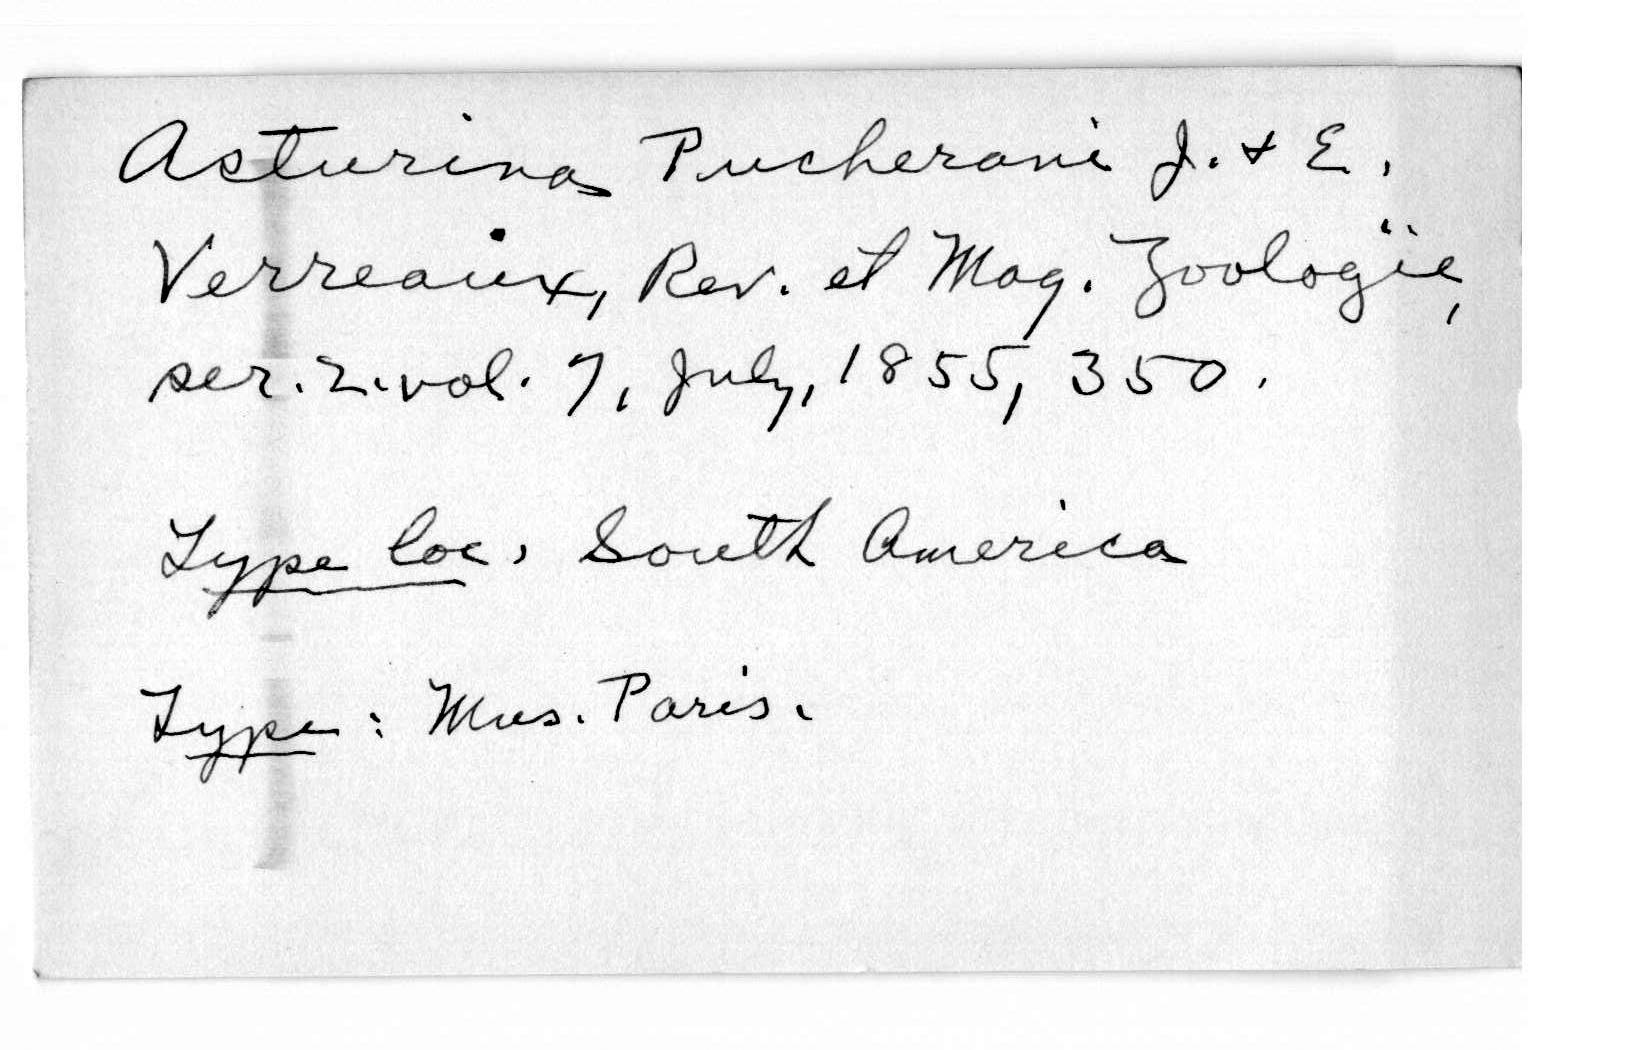 Asturina Pucherani J. & E.
Verreaux, Rev. et Mag. Zoologïe,
ser. 2. vol. 7, July, 1855, 350.
Type loc. South America
Type: Mus. Paris.